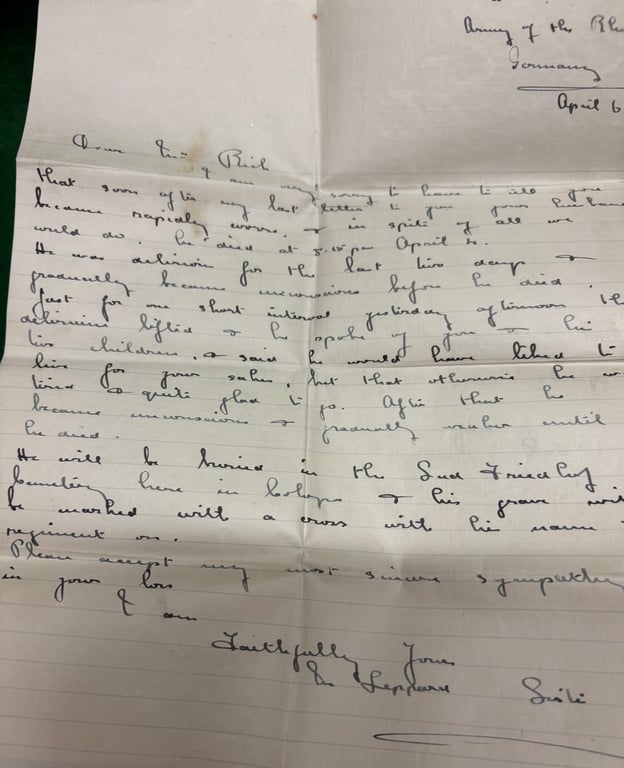 Army of the Rh
Germany
April 6
Dear Mrs Rich
I am very sorry to have to tell you
that soon after my last letter to you your husban
became rapidly worse, & in spite of all we
would do, he died at 8.15 pm April
He was delirious for the last two days &
gradually became unconscious before he died.
Just for one short interval yesterday afternoon th
delirium lifted & he spoke of you & his
two children, & said he would have liked to
live for your sakes, but that otherwise he wa
tired & quite glad to go. After that he
became unconscious & gradually weaker until
he died.
He will be buried in the Sud Friedhof
Cemetery here in Cologne & his grave will
be marked with a cross with his name
regiment on.
Please accept my most sincere sympathy
in your loss
I am
Faithfully Yours
Leppard Sister